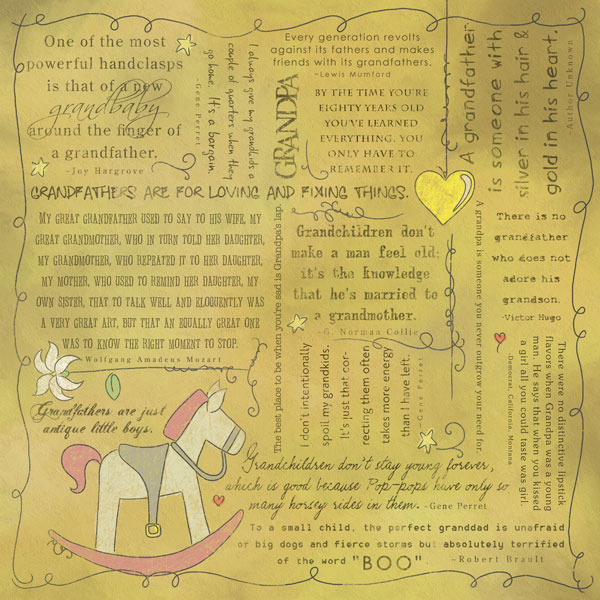 One of the most
powerful handclasps
is that of a new
grandbaby
around the finger of
a grandfather.
-Joy Hargrove
I always give my grandkids a
couple of quarters when they
go home. It's a bargain.
-Gene Perret
GRANDPA
Every generation revolts
against its fathers and makes
friends with its grandfathers.
~Lewis Mumford
BY THE TIME YOU'RE
EIGHTY YEARS OLD
YOU'VE LEARNED
EVERYTHING. YOU
ONLY HAVE TO
REMEMBER IT.
A grandfather
is someone with
silver in his hair &
gold in his heart.
-Author Unknown
GRANDFATHERS ARE FOR LOVING AND FIXING THINGS.
My great grandfather used to say to his wife, my
great grandmother, who in turn told her daughter,
my grandmother, who repeated it to her daughter,
my mother, who used to remind her daughter, my
own sister, that to talk well and eloquently was
a very great art, but that an equally great one
was to know the right moment to stop.
Wolfgang Amadeus Mozart
The best place to be when you're sad is Grandpa's lap.
Grandchildren don't
make a man feel old;
it's the knowledge
that he's married to
a grandmother.
-G. Norman Collie
A grandpa is someone you never outgrow your need for.
There is no
grandfather
who does not
adore his
grandson.
-Victor Hugo
I don't intentionally
spoil my grandkids.
It's just that cor-
recting them often
takes more energy
than I have left.
-Gene Perret
There were no distinctive lipstick
flavors when Grandpa was a young
man. He says that when you kissed
a girl all you could taste was girl.
-Democrat, California, Montana
Grandfathers are just
antique little boys.
Grandchildren don't stay young forever,
which is good because Pop-pops have only so
many horsey rides in them. -Gene Perret
To a small child, the perfect granddad is unafraid
of big dogs and fierce storms but absolutely terrified
of the word "BOO" -Robert Brault